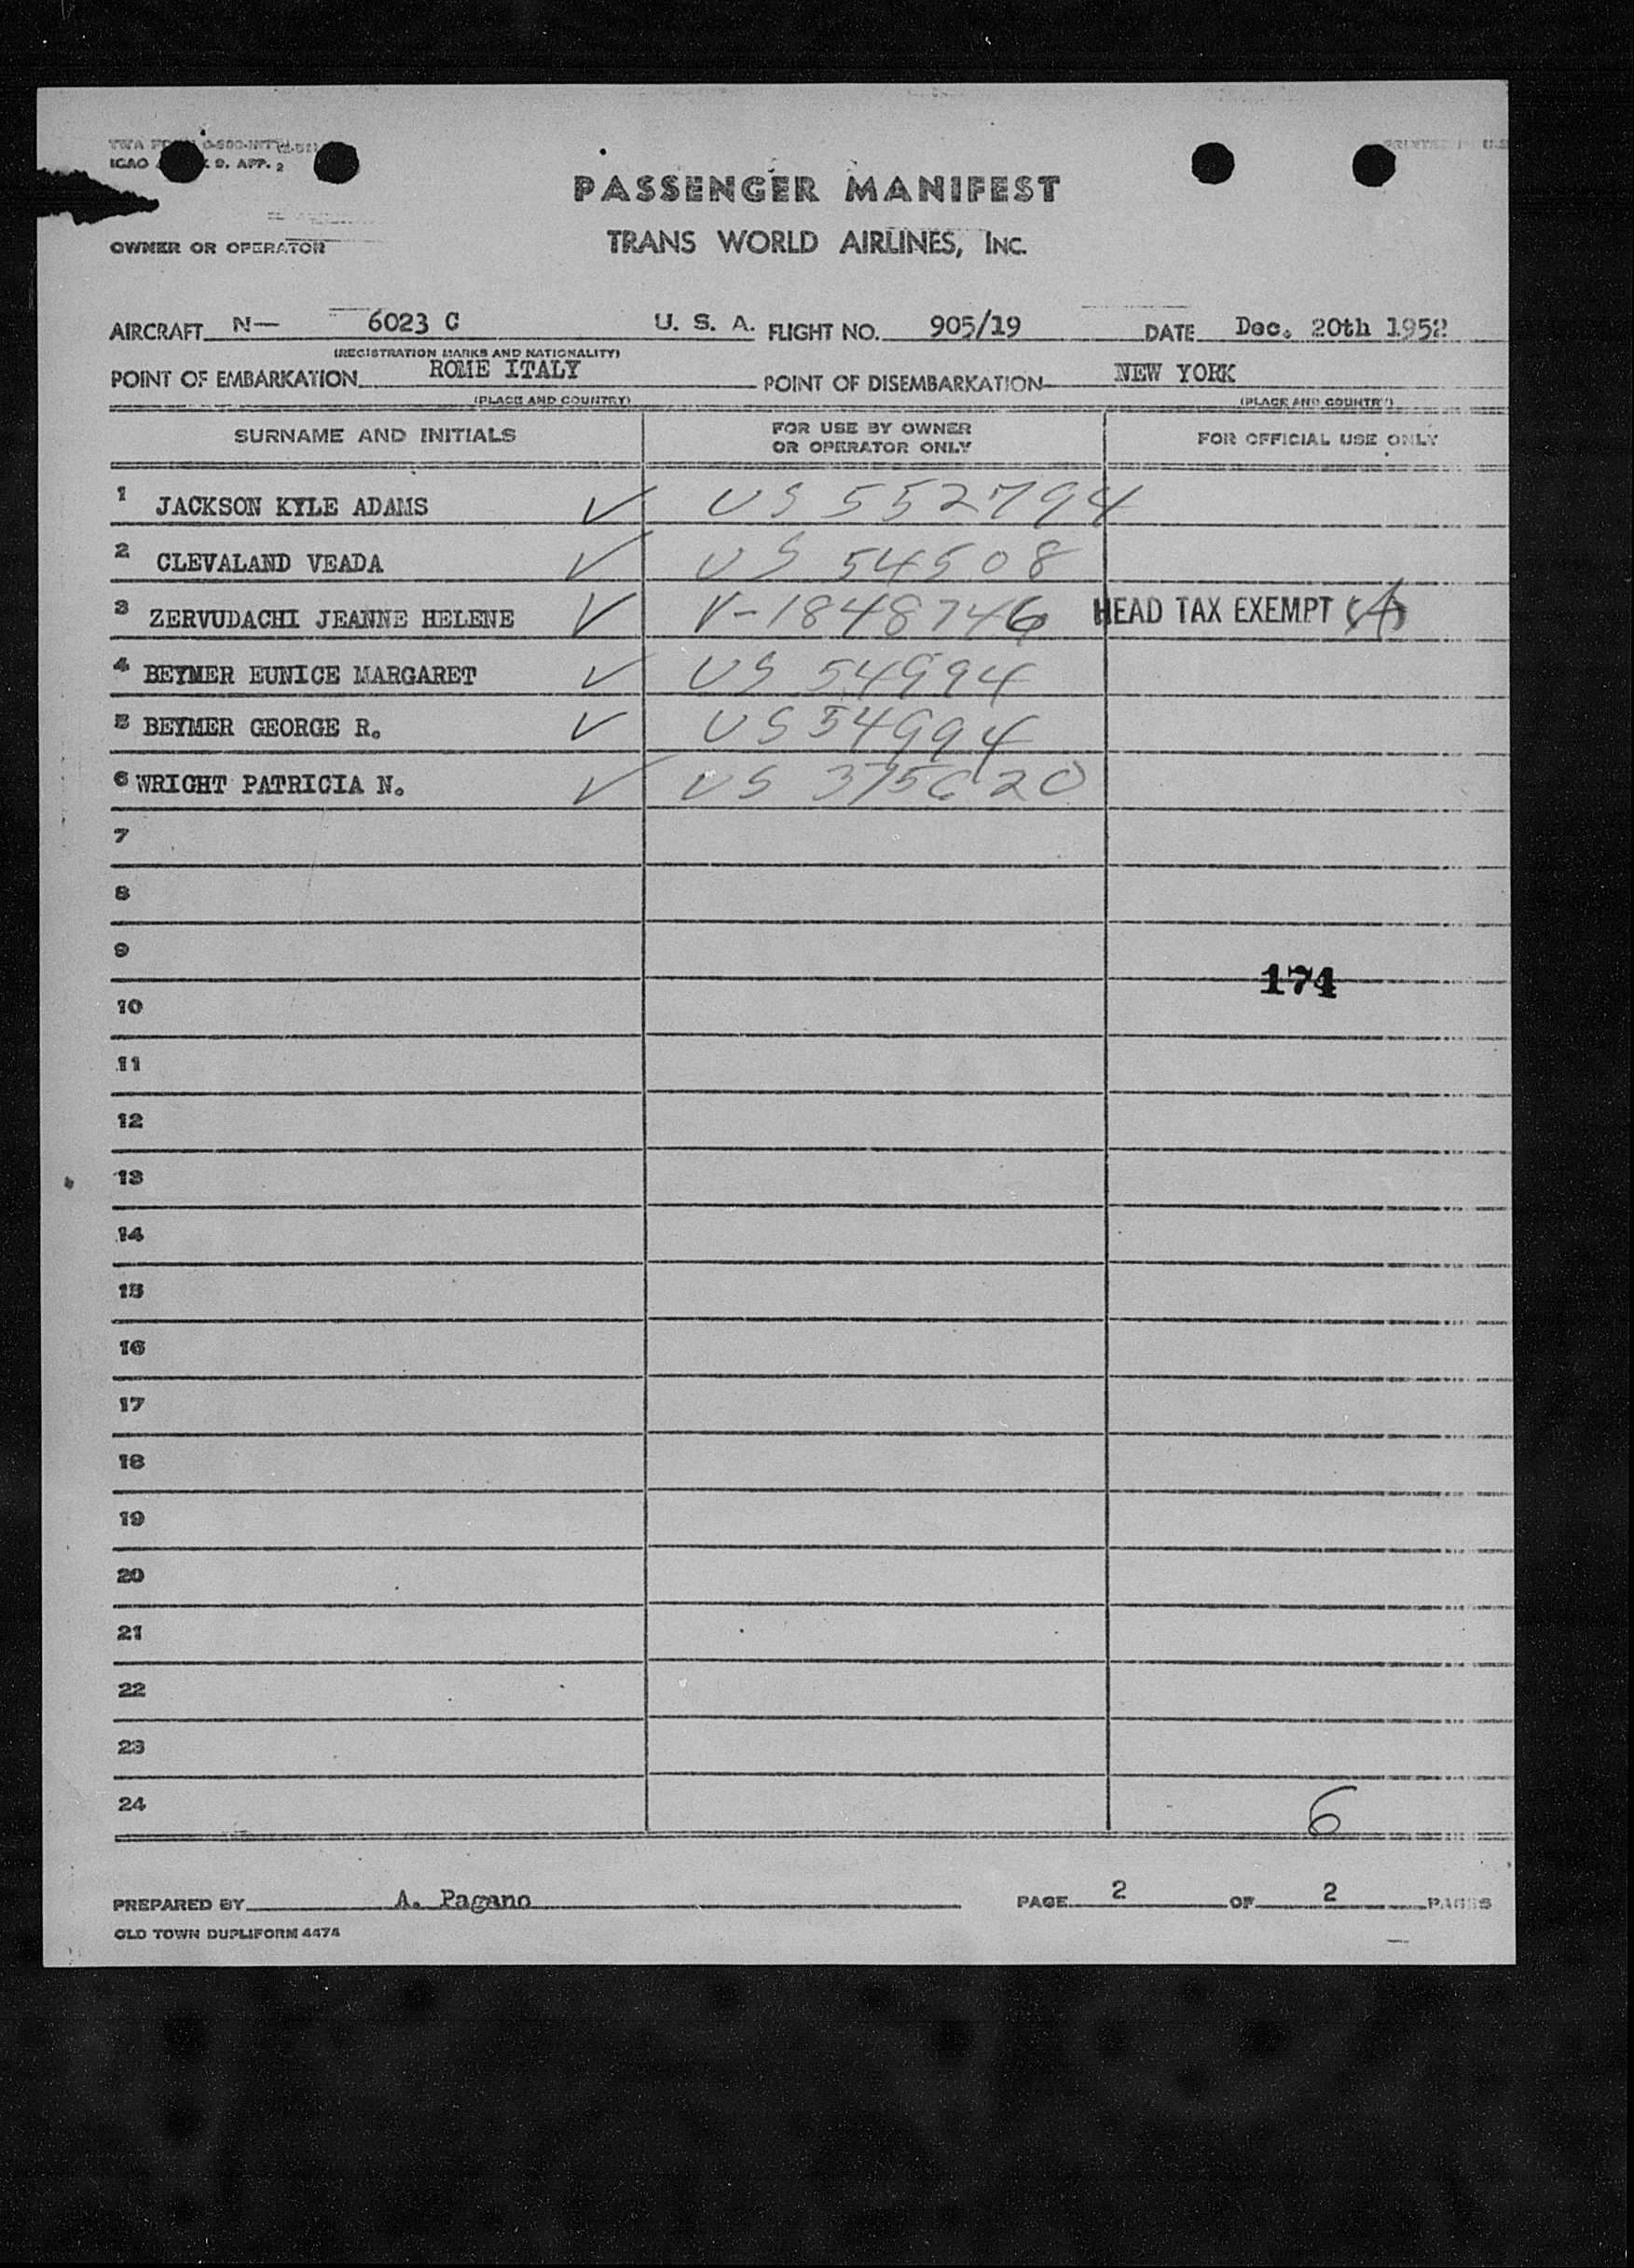 ICAO D. APP. 2
PASSENGER MANIFEST
TRANS WORLD AIRLINES, INC.
OWNER OR OPERATOR
AIRCRAFT N— 6023 C U. S. A. FLIGHT NO. 905/19 DATE Dec. 20th 1952
(REGISTRATION MARKS AND NATIONALITY)
POINT OF EMBARKATION ROME ITALY POINT OF DISEMBARKATION NEW YORK
(PLACE AND COUNTRY) (PLACE AND COUNTRY)
SURNAME AND INITIALS FOR USE BY OWNER OR OPERATOR ONLY FOR OFFICIAL USE ONLY
1 JACKSON KYLE ADAMS ✓ US 552794
2 CLEVALAND VEADA ✓ US 54508
3 ZERVUDACHI JEANNE HELENE ✓ V-1848746 HEAD TAX EXEMPT
4 BEYMER EUNICE MARGARET ✓ US 54994
5 BEYMER GEORGE R. ✓ US 54994
6 WRIGHT PATRICIA N. ✓ US 375620
7
8
9
174
10
11
12
13
14
15
16
17
18
19
20
21
22
23
24 6
PREPARED BY A. Pagano PAGE 2 OF 2 PAGES
OLD TOWN DUPLIFORM 4474